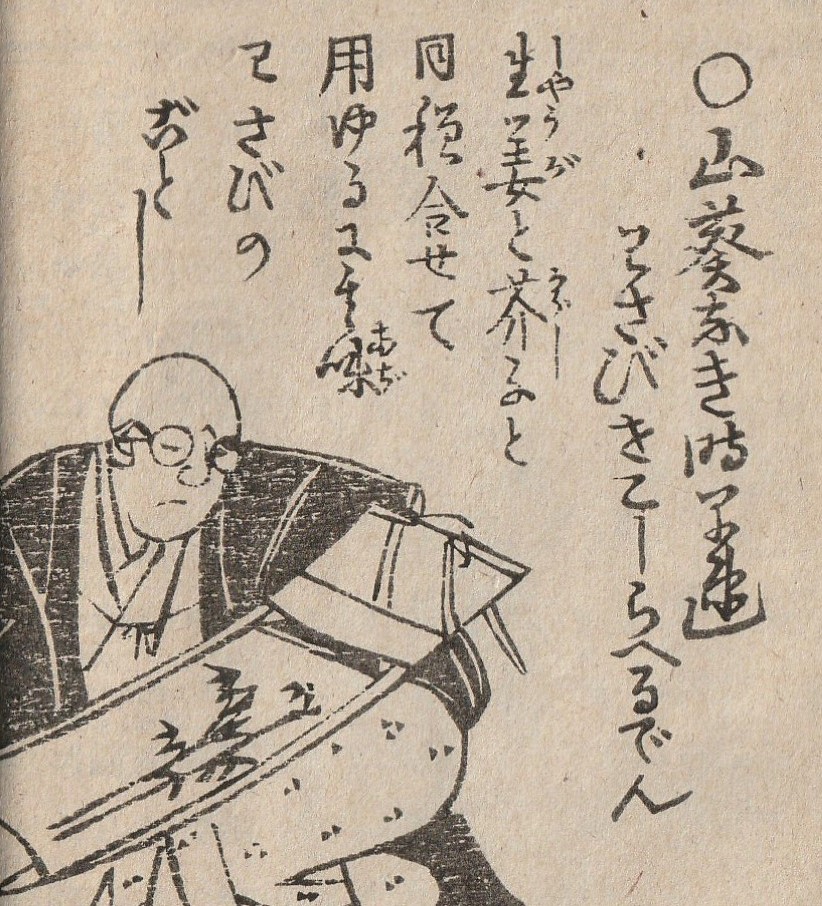 ○山葵なき時早速
わさびをこしらへるでん
しやうが からし
生姜と芥子と
同 合せて
用ゆるに其味
あぢ
ワさびの
ごとし